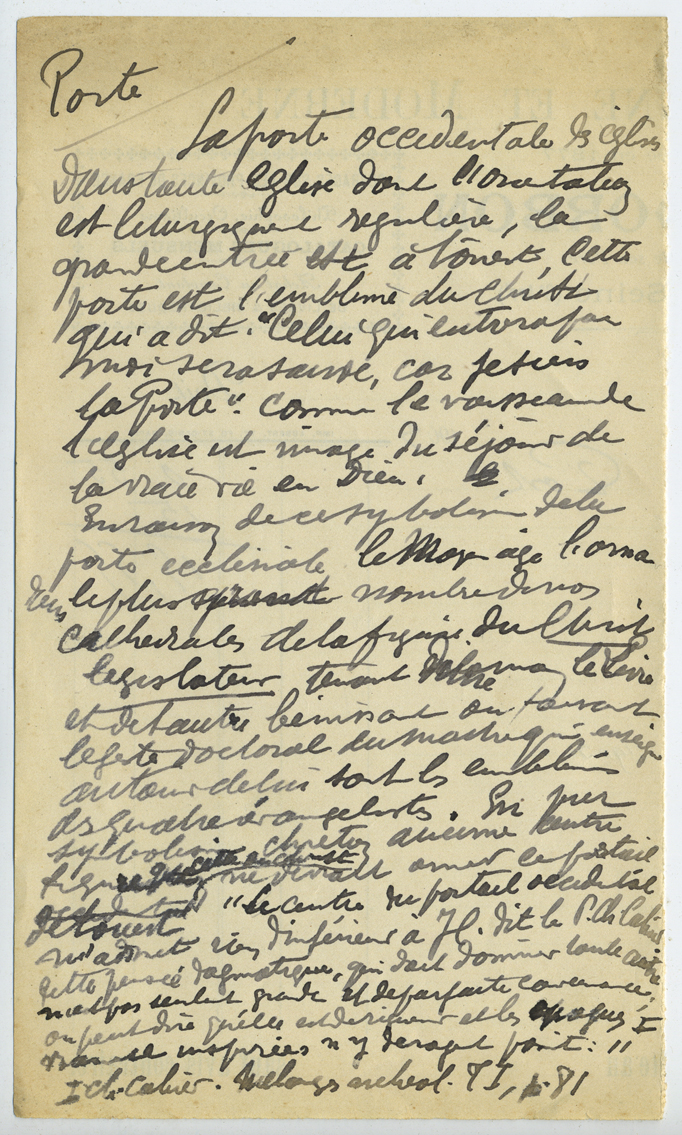 Porte
La porte occidentale ds églises
Dans toute église dont l'orientation
est liturgiqment régulière, la
grande entrée est à l'ouest, cette
porte est l'emblème du Christ
qui a dit : "Celui qui entrera par
moi sera sauvé, car je suis
la Porte". comme le vaisseau de
l'église est image du séjour de
la vraie vie en Dieu.
En raison de ce symbolisme de la
porte ecclésiale le Moyen âge l'orna
dans le plus nombre de nos
cathédrales de la figure du Christ
législateur tenant le Livre
et de l'autre bénissant ou faisant
le geste doctoral du maître qui enseigne
autour de lui sont ls emblèmes
ds quatre évangelists. En pure
symbolisme chrétien aucune autre
figure ne devrait orner ce portail
de l'ouest "Le centre du portail occidental
n'admet rien d'inférieur à J.C. dit le P. Ch. Cahier
cette pensée dogmatique, qui doit dominer toute autre
n'est pas seulemt grande et de parfaite convenance,
on peut dire qu'elle est de rigueur et les époques
vraimt inspirées n'y dérogent point : "
I ch. Cahier. Mélangs archéol. T I, p. 81